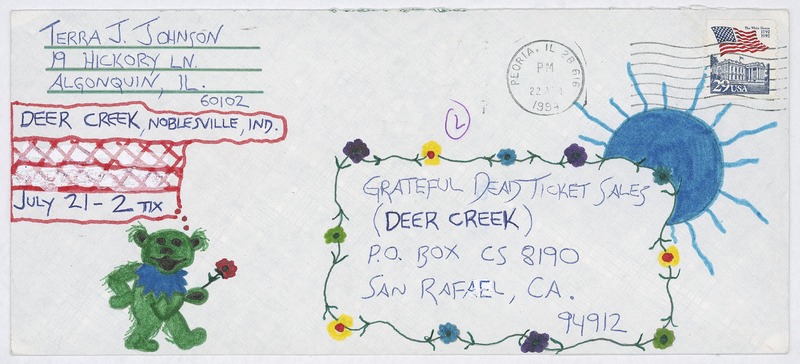 TERRA J. JOHNSON
19 HICKORY LN.
ALGONQUIN, IL.
60102
DEER CREEK, NOBLESVILLE, IND.
JULY 21 - 2 TIX
PEORIA, IL 616
PM
1994
The White House
1792 1992
29 USA
GRATEFUL DEAD TICKET SALES
(DEER CREEK)
P.O. BOX CS 8190
SAN RAFAEL, CA.
94912